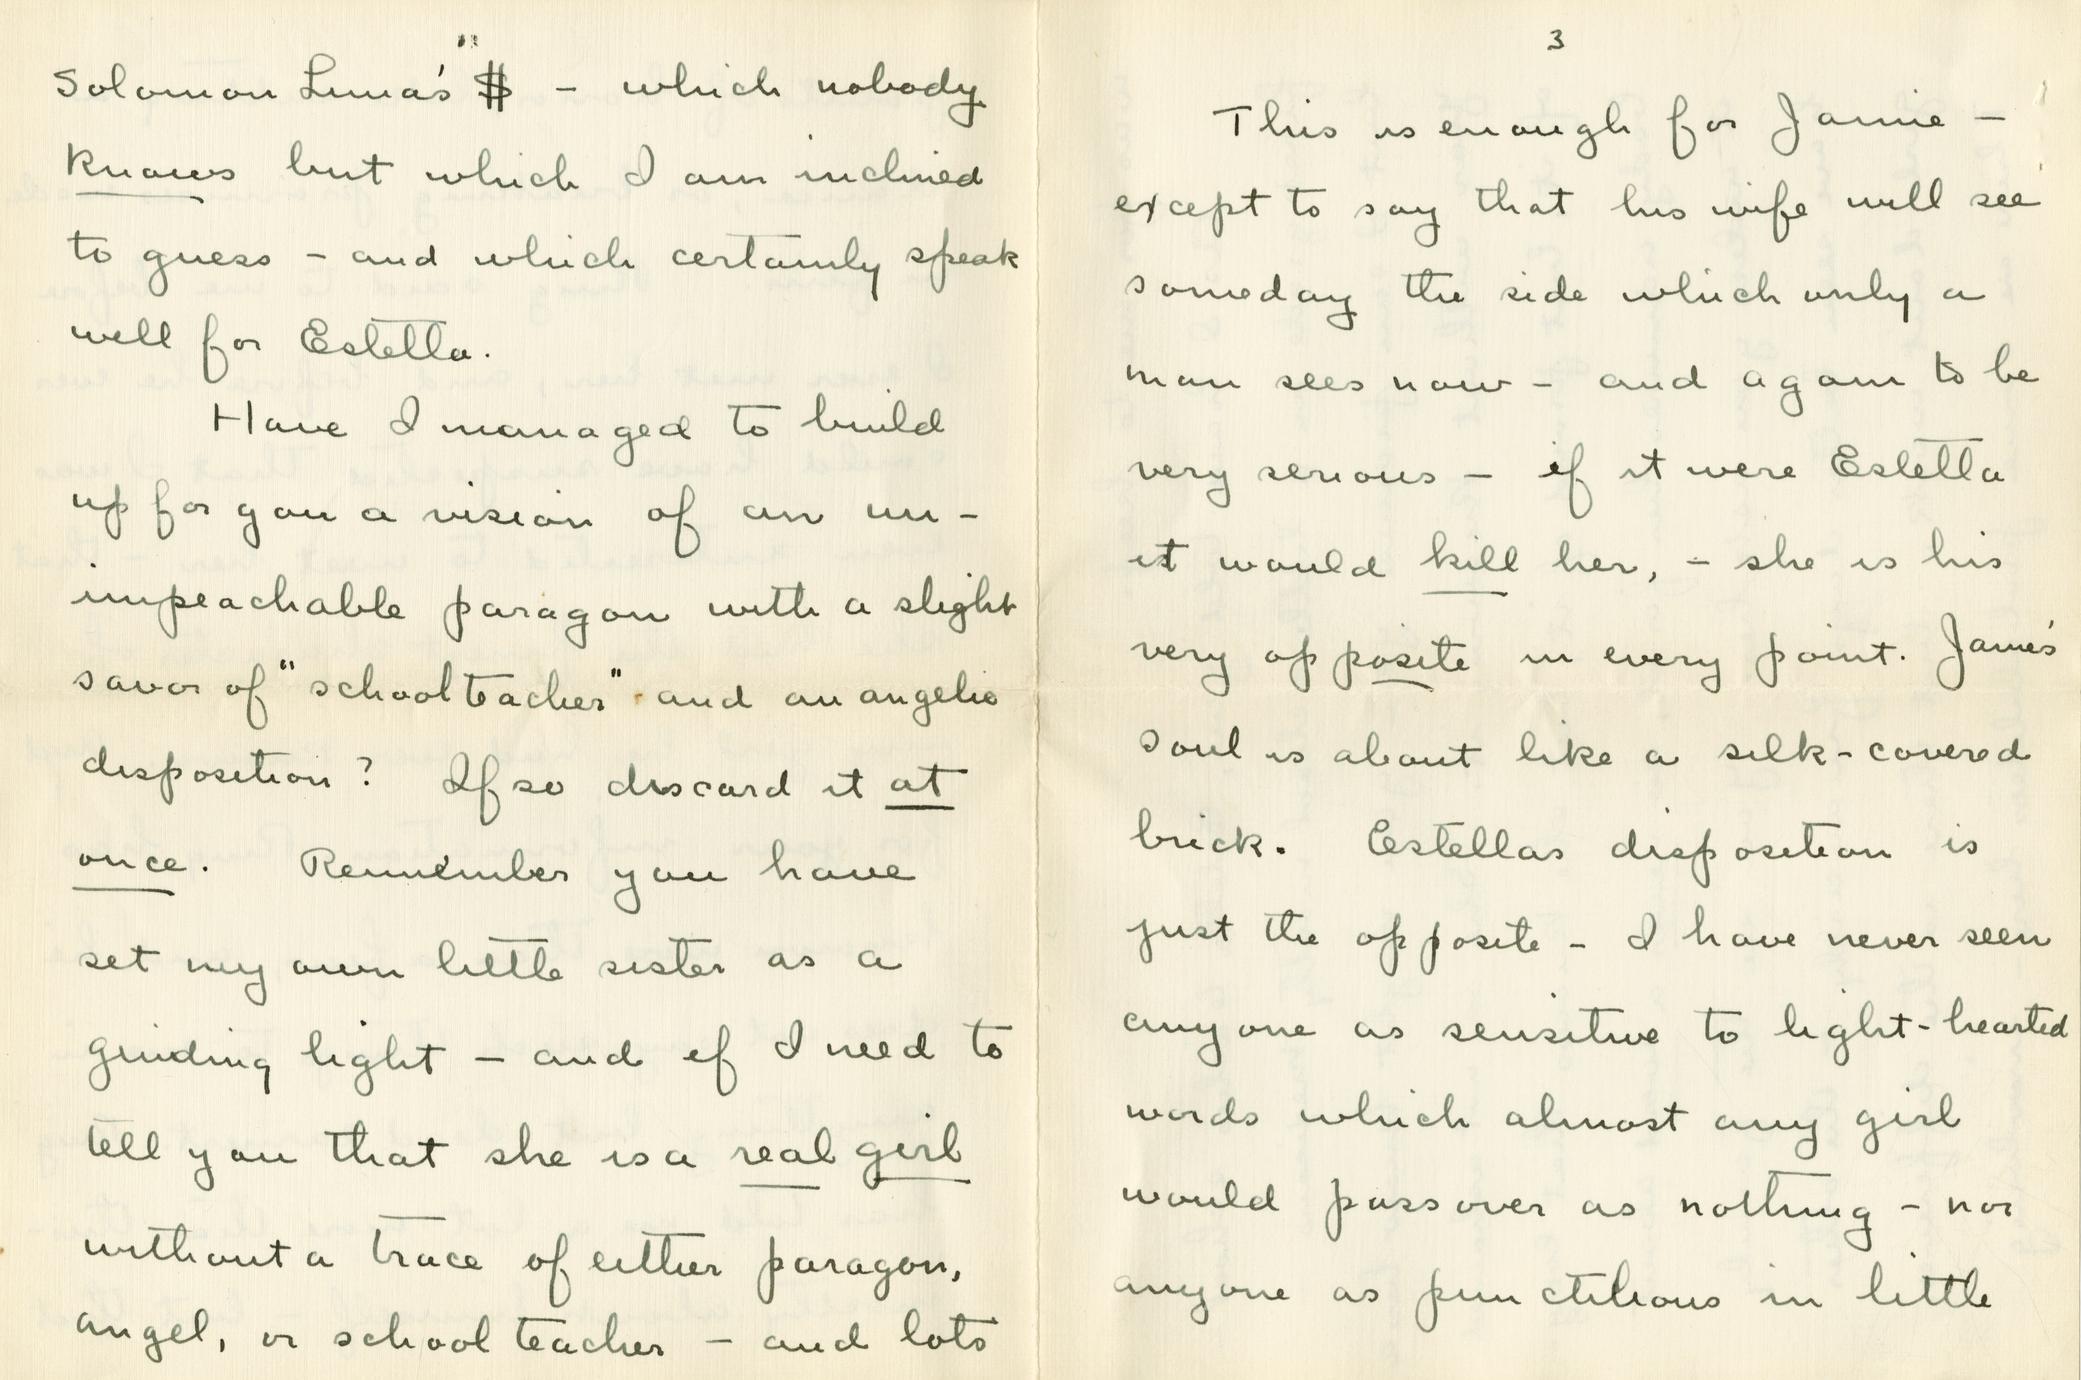 Solomon Luna's "$ - which nobody
knows but which I am inclined
to guess - and which certainly speak
well for Estella.
Have I managed to build
up for you a vision of an un-
impeachable paragon with a slight
savor of "schoolteacher" and an angelic
disposition? If so discard it at
once. Remember you have
set my own little sister as a
guiding light - and if I need to
tell you that she is a real girl
without a trace of either paragon,
angel, or school teacher - and lots
3
This is enough for Jamie -
except to say that his wife will see
someday the side which only a
man sees now - and again to be
very serious - if it were Estella
it would kill her, - she is his
very opposite in every point. Jamie's
soul is about like a silk-covered
brick. Estellas disposition is
just the opposite - I have never seen
anyone as sensitive to light-hearted
words which almost any girl
would pass over as nothing - nor
anyone as punctilious in little